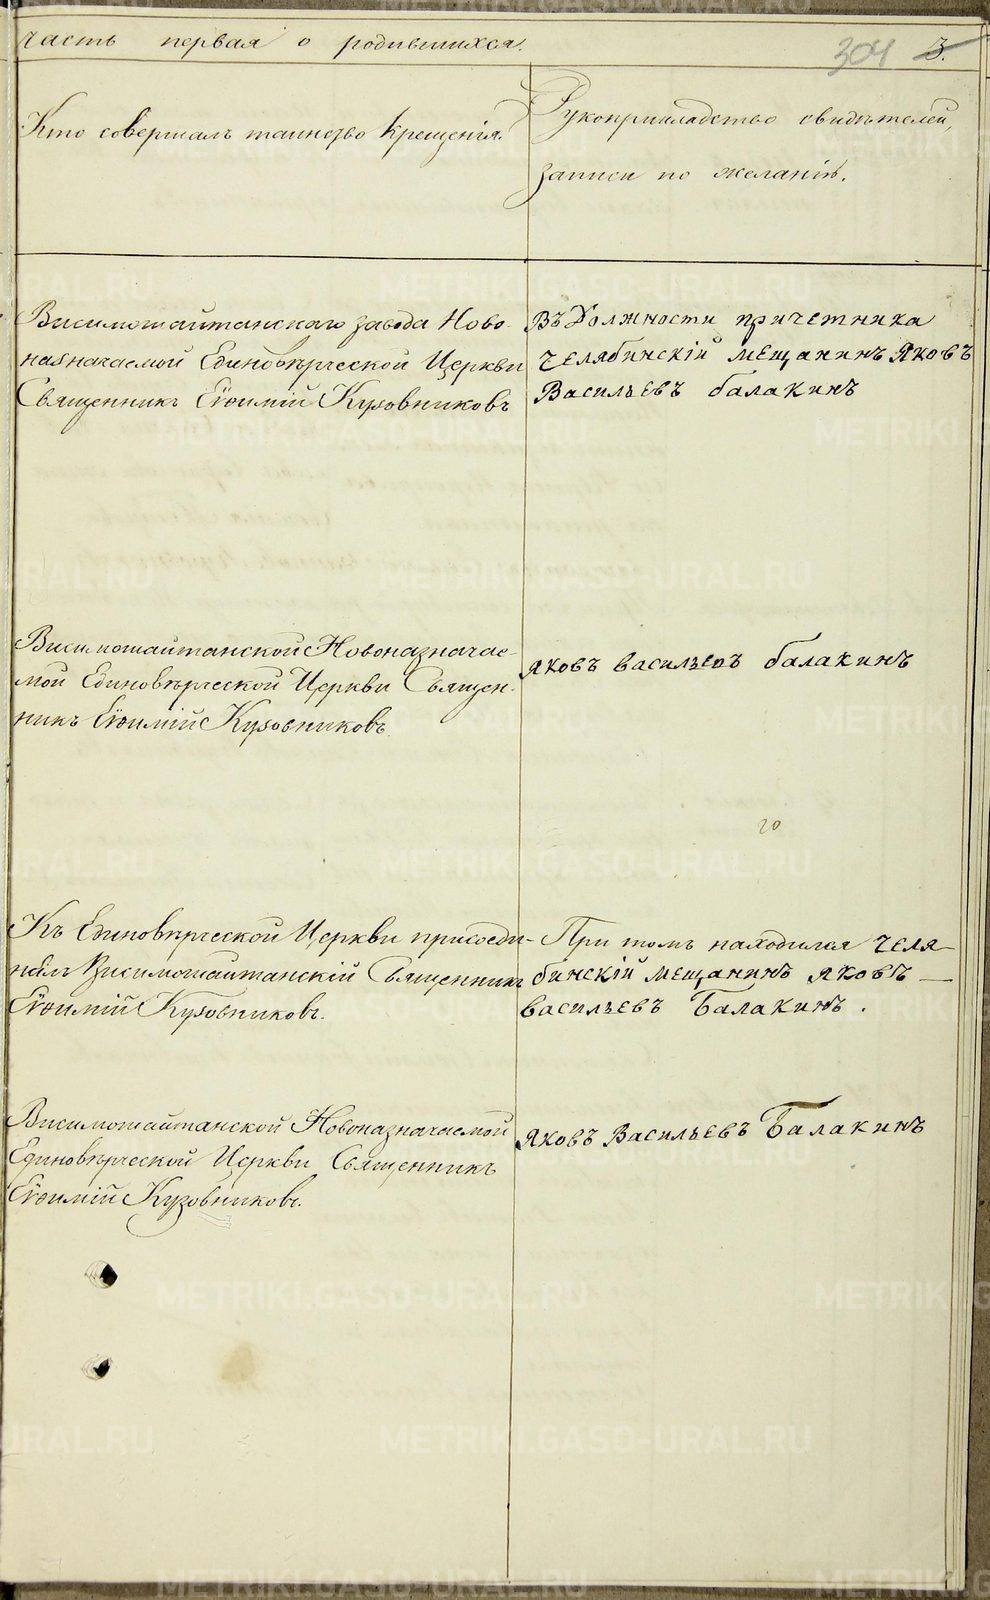 часть первая о родившихся.
304 3.
Кто совершалъ таинство крещенія.
Рукоприкладство свидѣтелей,
записи по желанію.
Висимошайтанскаго завода Ново-
назначаемой Единовѣрческой Церкви
Священникъ Евѳимій Кузовниковъ
Въ Должности причетника
челябинскій мещанинъ Яковъ
Васильевъ балакинъ
Висимошайтанской Новоназначае-
мой Единовѣрческой Церкви Священ-
никъ Евѳимій Кузовниковъ
яковъ васильевъ балакинъ
20
Къ Единовѣрческой Церкви присоеди-
нялъ Висимошайтанскій Священникъ
Евѳимій Кузовниковъ.
При томъ находился челя-
бинскій мещанинъ яковъ
васильевъ Балакинъ.
Висимошайтанской Новоназначаемой
Единовѣрческой Церкви Священникъ
Евѳимій Кузовниковъ.
яковъ Васильевъ Балакинъ
METRIKI.GASO-URAL.RU